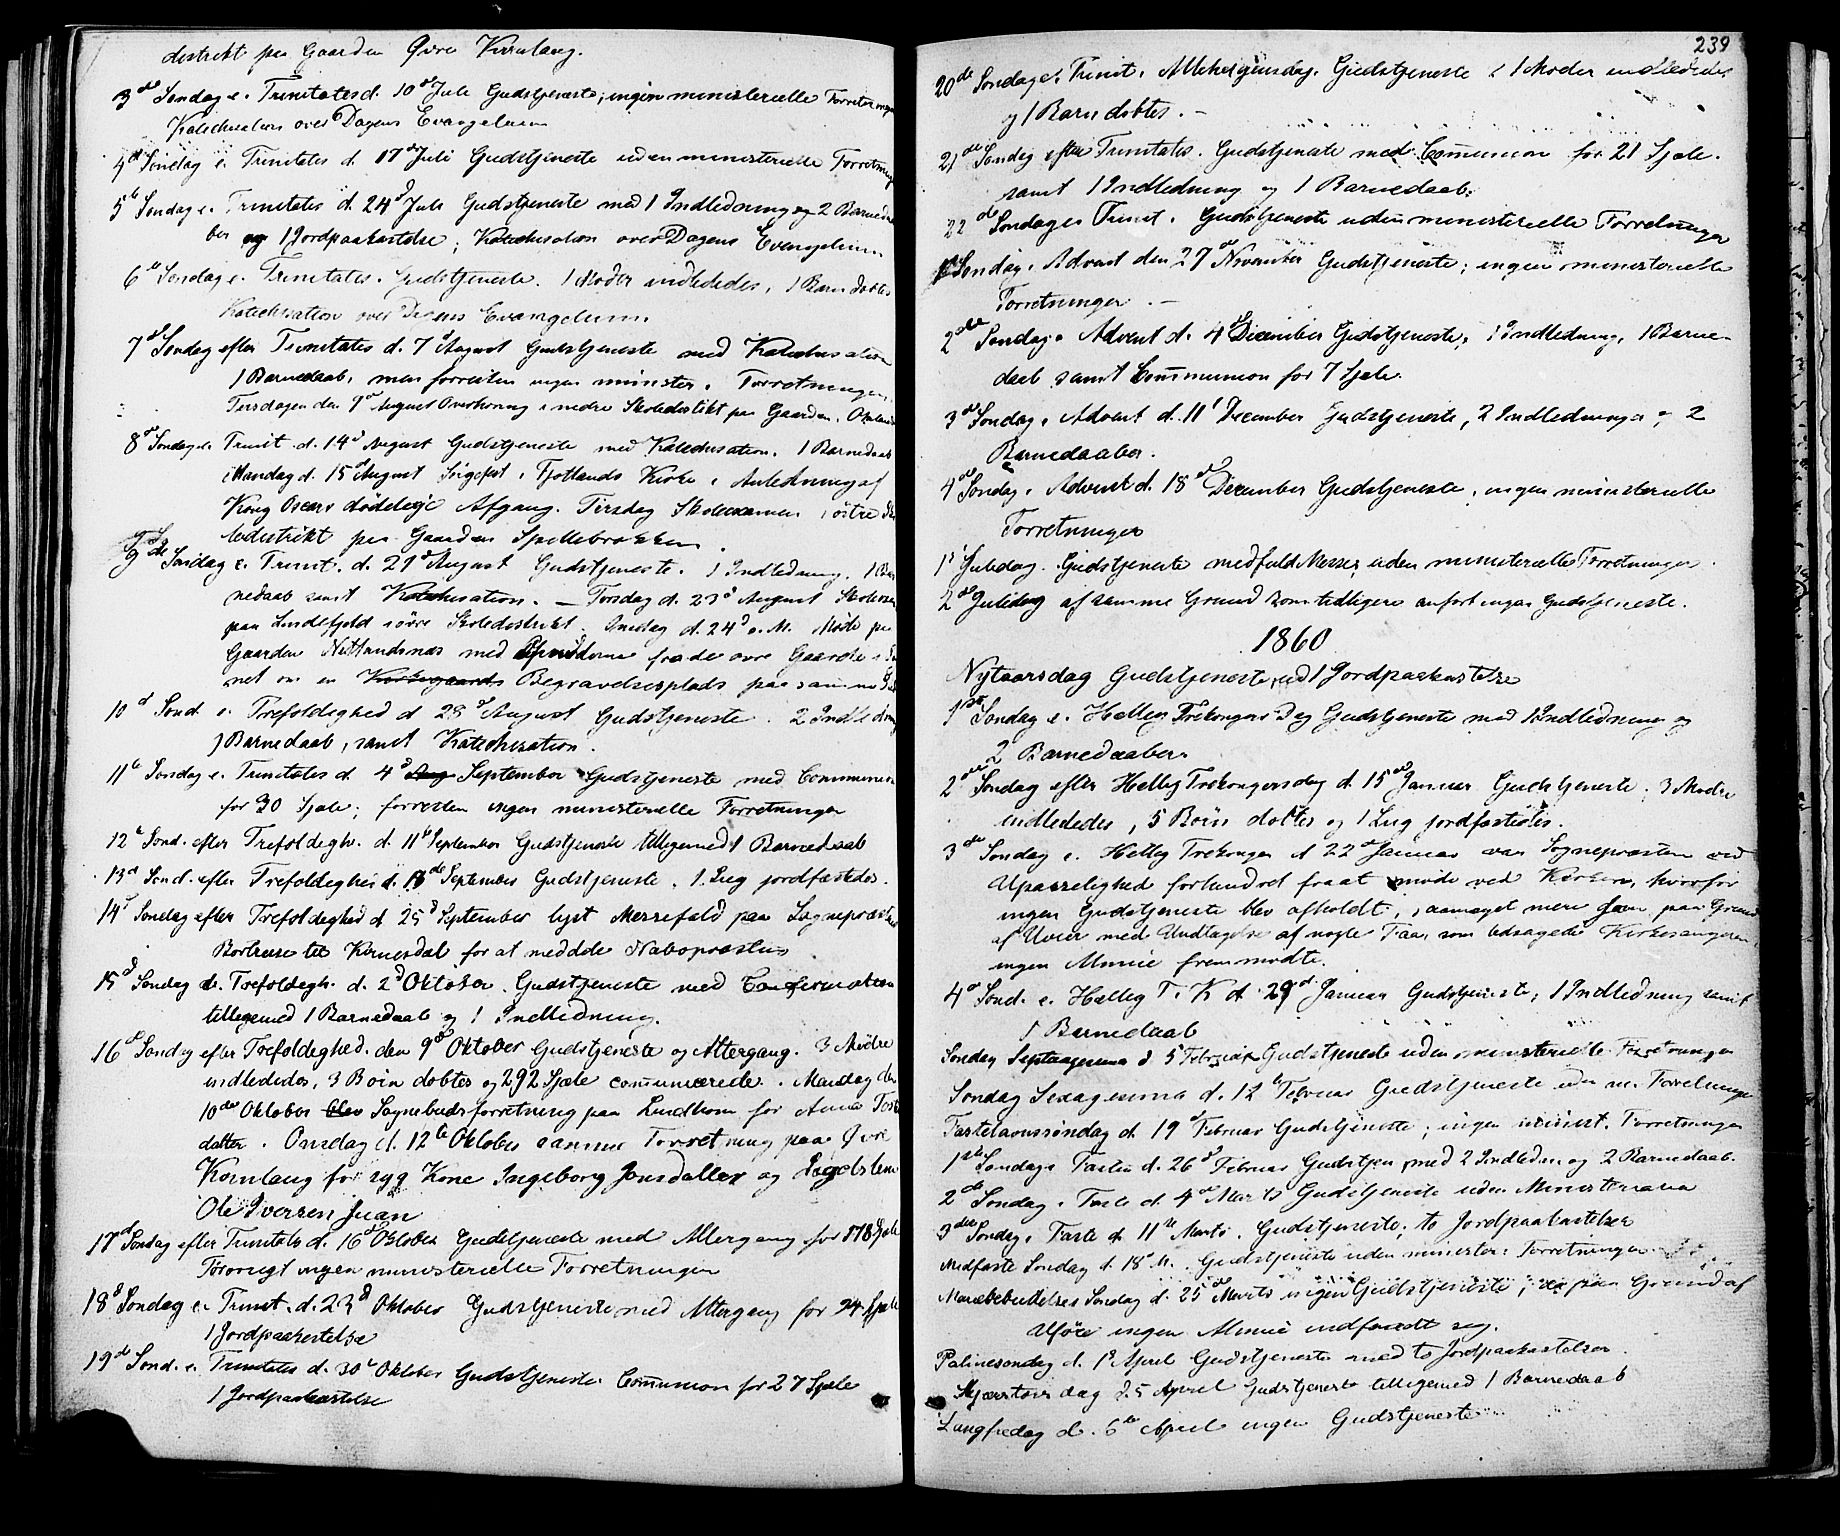 distrikt paa Gaarden Øvre
3die Søndag e. Trinitatis d. 10de Juli Gudstjeneste; ingen ministerielle Forretninger
Katechisation over Dagens Evangelium
4de Søndag e. Trinitatis d. 17de Juli Gudstjeneste uden ministerielle Forretninger
5te Søndag e. Trinitatis d. 24d Juli Gudstjeneste med 1 Indledning og 2 Barneda
ber og 1 Jordpaakastelse; Katechisation over Dagens Evangelium
6te Søndag e. Trinitatis. Gudstjeneste. 1 Moder indlededes, 1 Barn døbtes
Katechisation over Dagens Evangelium.
7de Søndag efter Trinitatis d. 7d August Gudstjeneste med Katechisation
1 Barnedaab, men forresten ingen minister. Forretninger.
Tirsdagen den 9de August Overhøring i nedre Skoledistrikt paa Gaarden
8de Søndag e. Trinit. d. 14d August Gudstjeneste med Katechisation. 1 Barnedaab
Mandag d. 15d August Sørgefest i Fjotlands Kirke i Anledning af
Kong Oscars dødelige Afgang. Tirsdag Skoleexamen i østre Sko
ledistrikt paa Gaarden Spillebrokken.
9de Søndag e. Trinit. d. 21d August Gudstjeneste. 1 Indledning. 1 Bar
nedaab samt Katechisation. — Torsdag d. 23d August Skoleexa
paa Lindefjeld i øvre Skoledistrikt. Onsdag d. 24d s. M. Møde paa
Gaarden Netlandsnæs med Opsidderne fra de øvre Gaarde i
net om en Kirkegaards Begravelsesplads paa samme
10d Sønd. e. Trefoldighed d. 28d August Gudstjeneste. 2 Indledning
1 Barnedaab, samt Katechisation.
11te Søndag e. Trinitatis d. 4d Aug September Gudstjeneste med Communion
for 30 Sjæle; forresten ingen ministerielle Forretninger
12te Sønd. efter Trefoldigh. d. 11te September Gudstjeneste tilligemed 1 Barnedaab
13d Sønd. efter Trefoldighed d. 18de September Gudstjeneste. 1 Liig jordfæstedes.
14d Søndag efter Trefoldighed d. 25d September lyst Messefald paa Sognepræstens
Bortreise til Kvinesdal for at meddele Nabopræsten
15d Søndag e. Trefoldigh. d. 2d Oktober. Gudstjeneste med Confirmation
tilligemed 1 Barnedaab og 1 Indledning.
16d Søndag efter Trefoldighed den 9d Oktober Gudstjeneste og Altergang. 3 Mødre
indlededes, 3 Børn døbtes og 292 Sjæle communicerede. Mandag den
10de Oktober blev Sognebudsforretning paa Lindhom for Anna Tors
datter. Onsdag d. 12te Oktober samme Forretning paa Øvre
Kornlaug for syg Kone Ingeborg Jonsdatter og
Ole Iversen Juan
17d Søndag efter Trinitatis d. 16d Oktober Gudstjeneste med Altergang for 178 Sjæle
Forøvrigt ingen ministerielle Forretninger
18d Søndag e. Trinit. d. 23d Oktober Gudstjeneste med Altergang for 94 Sjæle
1 Jordpaakastelse
19d Sønd. e. Trinitatis d. 30te Oktober Gudstjeneste. Communion for 27 Sjæle
1 Jordpaakastelse
239
20de Søndag e. Trinit. Allehelgensdag. Gudstjeneste. 1 Moder indlededes
og 1 Barn døbtes. —
21de Søndag efter Trinitatis. Gudstjeneste med Communion for 21 Sjæle.
samt 1 Indledning og 1 Barnedaab.
22d Søndag e. Trinit. Gudstjeneste uden ministerielle Forretninger
1ste Søndag i Advent den 27de November Gudstjeneste; ingen ministerielle
Forretninger. —
2den Søndag i Advent d. 4d December Gudstjeneste, 1 Indledning, 1 Barne-
daab samt Communion for 7 Sjæle.
3die Søndag i Advent d. 11te December Gudstjeneste, 2 Indledninger og 2
Barnedaaber.
4de Søndag i Advent d. 18de December Gudstjeneste, ingen ministerielle
Forretninger
1ste Juledag. Gudstjeneste med fuld Messe, uden ministerielle Forretninger.
2den Juledag af samme Grund som tidligere anført ingen Gudstjeneste.
1860
Nytaarsdag Gudstjeneste, ved 1 Jordpaakastelse
1ste Søndag e. Hellig Trekongers Dag Gudstjeneste med 1 Indledning og
2 Barnedaaber.
2den Søndag efter Hellig Trekongersdag d. 15de Januar Gudstjeneste. 3 Mødre
indlededes, 5 Børn døbtes og 1 Liig jordfæstedes.
3die Søndag e. Hellig Trekonger d. 22de Januar var Sognepræsten ved
Upasselighed forhindret fra at møde ved Kirken, hvorfor
ingen Gudstjeneste blev afholdt, saameget mere som paa Grund
af Uveir med Undtagelse af nogle Faa, som ledsagede Kirkesangeren,
ingen Almue fremmødte.
4de Sønd. e. Hellig T. K. d. 29de Januar Gudstjeneste; 1 Indledning samt
1 Barnedaab
Søndag Septuagesima d. 5 Februar Gudstjeneste uden ministerielle Forretninger
Søndag Sexagesima d. 12te Februar Gudstjeneste uden m. Forretninger
Fastelavnssøndag d. 19d Februar Gudstjeneste; ingen minist. Forretninger
1ste Søndag i Fasten d. 26d Februar Gudstjen. med 2 Indledn. og 2 Barnedaab.
2de Søndag i Faste d. 4de Marts Gudstjeneste uden Ministerialia
3die Søndag i Faste d. 11te Marts. Gudstjeneste; to Jordpaakastelser
Midfaste Søndag d. 18d M. Gudstjeneste uden minister. Forretninger.
Mariæbebudelses Søndag d. 25de Marts ingen Gudstjeneste; da paa Grund af
Uføre ingen Almue indfandt sig.
Palmesøndag d. 1ste April Gudstjeneste med to Jordpaakastelser.
Skjærtorsdag d. 5 April Gudstjeneste tilligemed 1 Barnedaab
Langfredag d. 6te April ingen Gudstjeneste